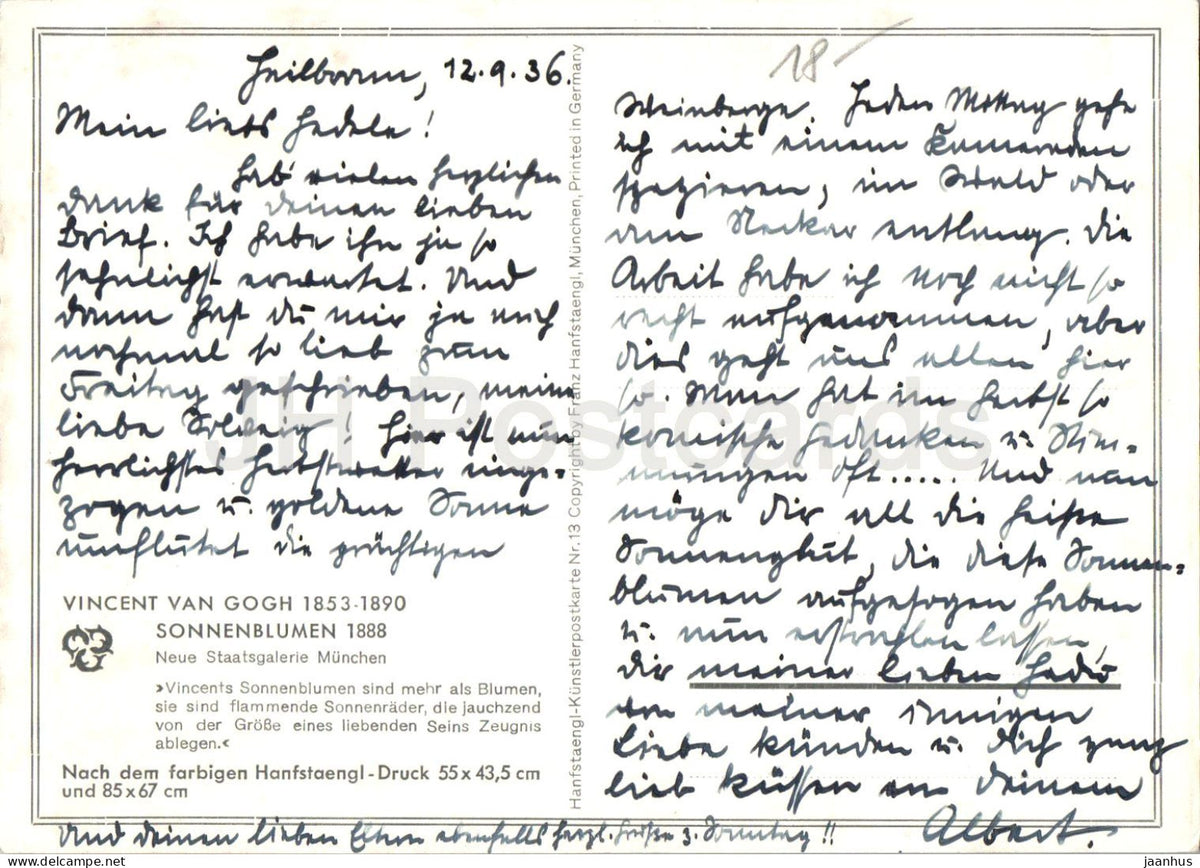 Heilbronn, 12.9.36.
Mein liebs Hedele!
Hab' vielen herzlichen
Dank für Deinen lieben
Brief. Ich habe ihn ja so
sehnlichst erwartet. Und
dann hast Du mir ja auch
nochmal so lieb zum
Freitag geschrieben, meine
liebe Solveig! Hier ist nun
herrlichstes Herbstwetter einge-
zogen u. goldene Sonne
umflutet die prächtigen
VINCENT VAN GOGH 1853-1890
SONNENBLUMEN 1888
Neue Staatsgalerie München
»Vincents Sonnenblumen sind mehr als Blumen,
sie sind flammende Sonnenräder, die jauchzend
von der Größe eines liebenden Seins Zeugnis
ablegen.«
Nach dem farbigen Hanfstaengl-Druck 55x43,5 cm
und 85x67 cm
Hanfstaengl-Künstlerpostkarte Nr. 13 Copyright by Franz Hanfstaengl, München, Printed in Germany
18-
Weinberge. Jeden Mittag gehe
ich mit einem Kameraden
spazieren, im Wald oder
am Neckar entlang. Die
Arbeit habe ich noch nicht so
recht aufgenommen, aber
dies geht uns allen hier
so. Man hat im Herbst so
komische Gedanken u. Stim-
mungen oft..... Und nun
möge Dir all die heiße
Sonnenglut, die diese Sonnen-
blumen aufgesogen haben
u. nun erstrahlen lassen,
Dir meiner lieben Hedi
von meiner innigen
Liebe künden u. Dich ganz
lieb küssen von Deinem
Albert.
Und Deinen lieben Eltern ebenfalls herzl. Grüße z. Sonntag!!
JH Postcards
www.delcampe.net
jaanhus